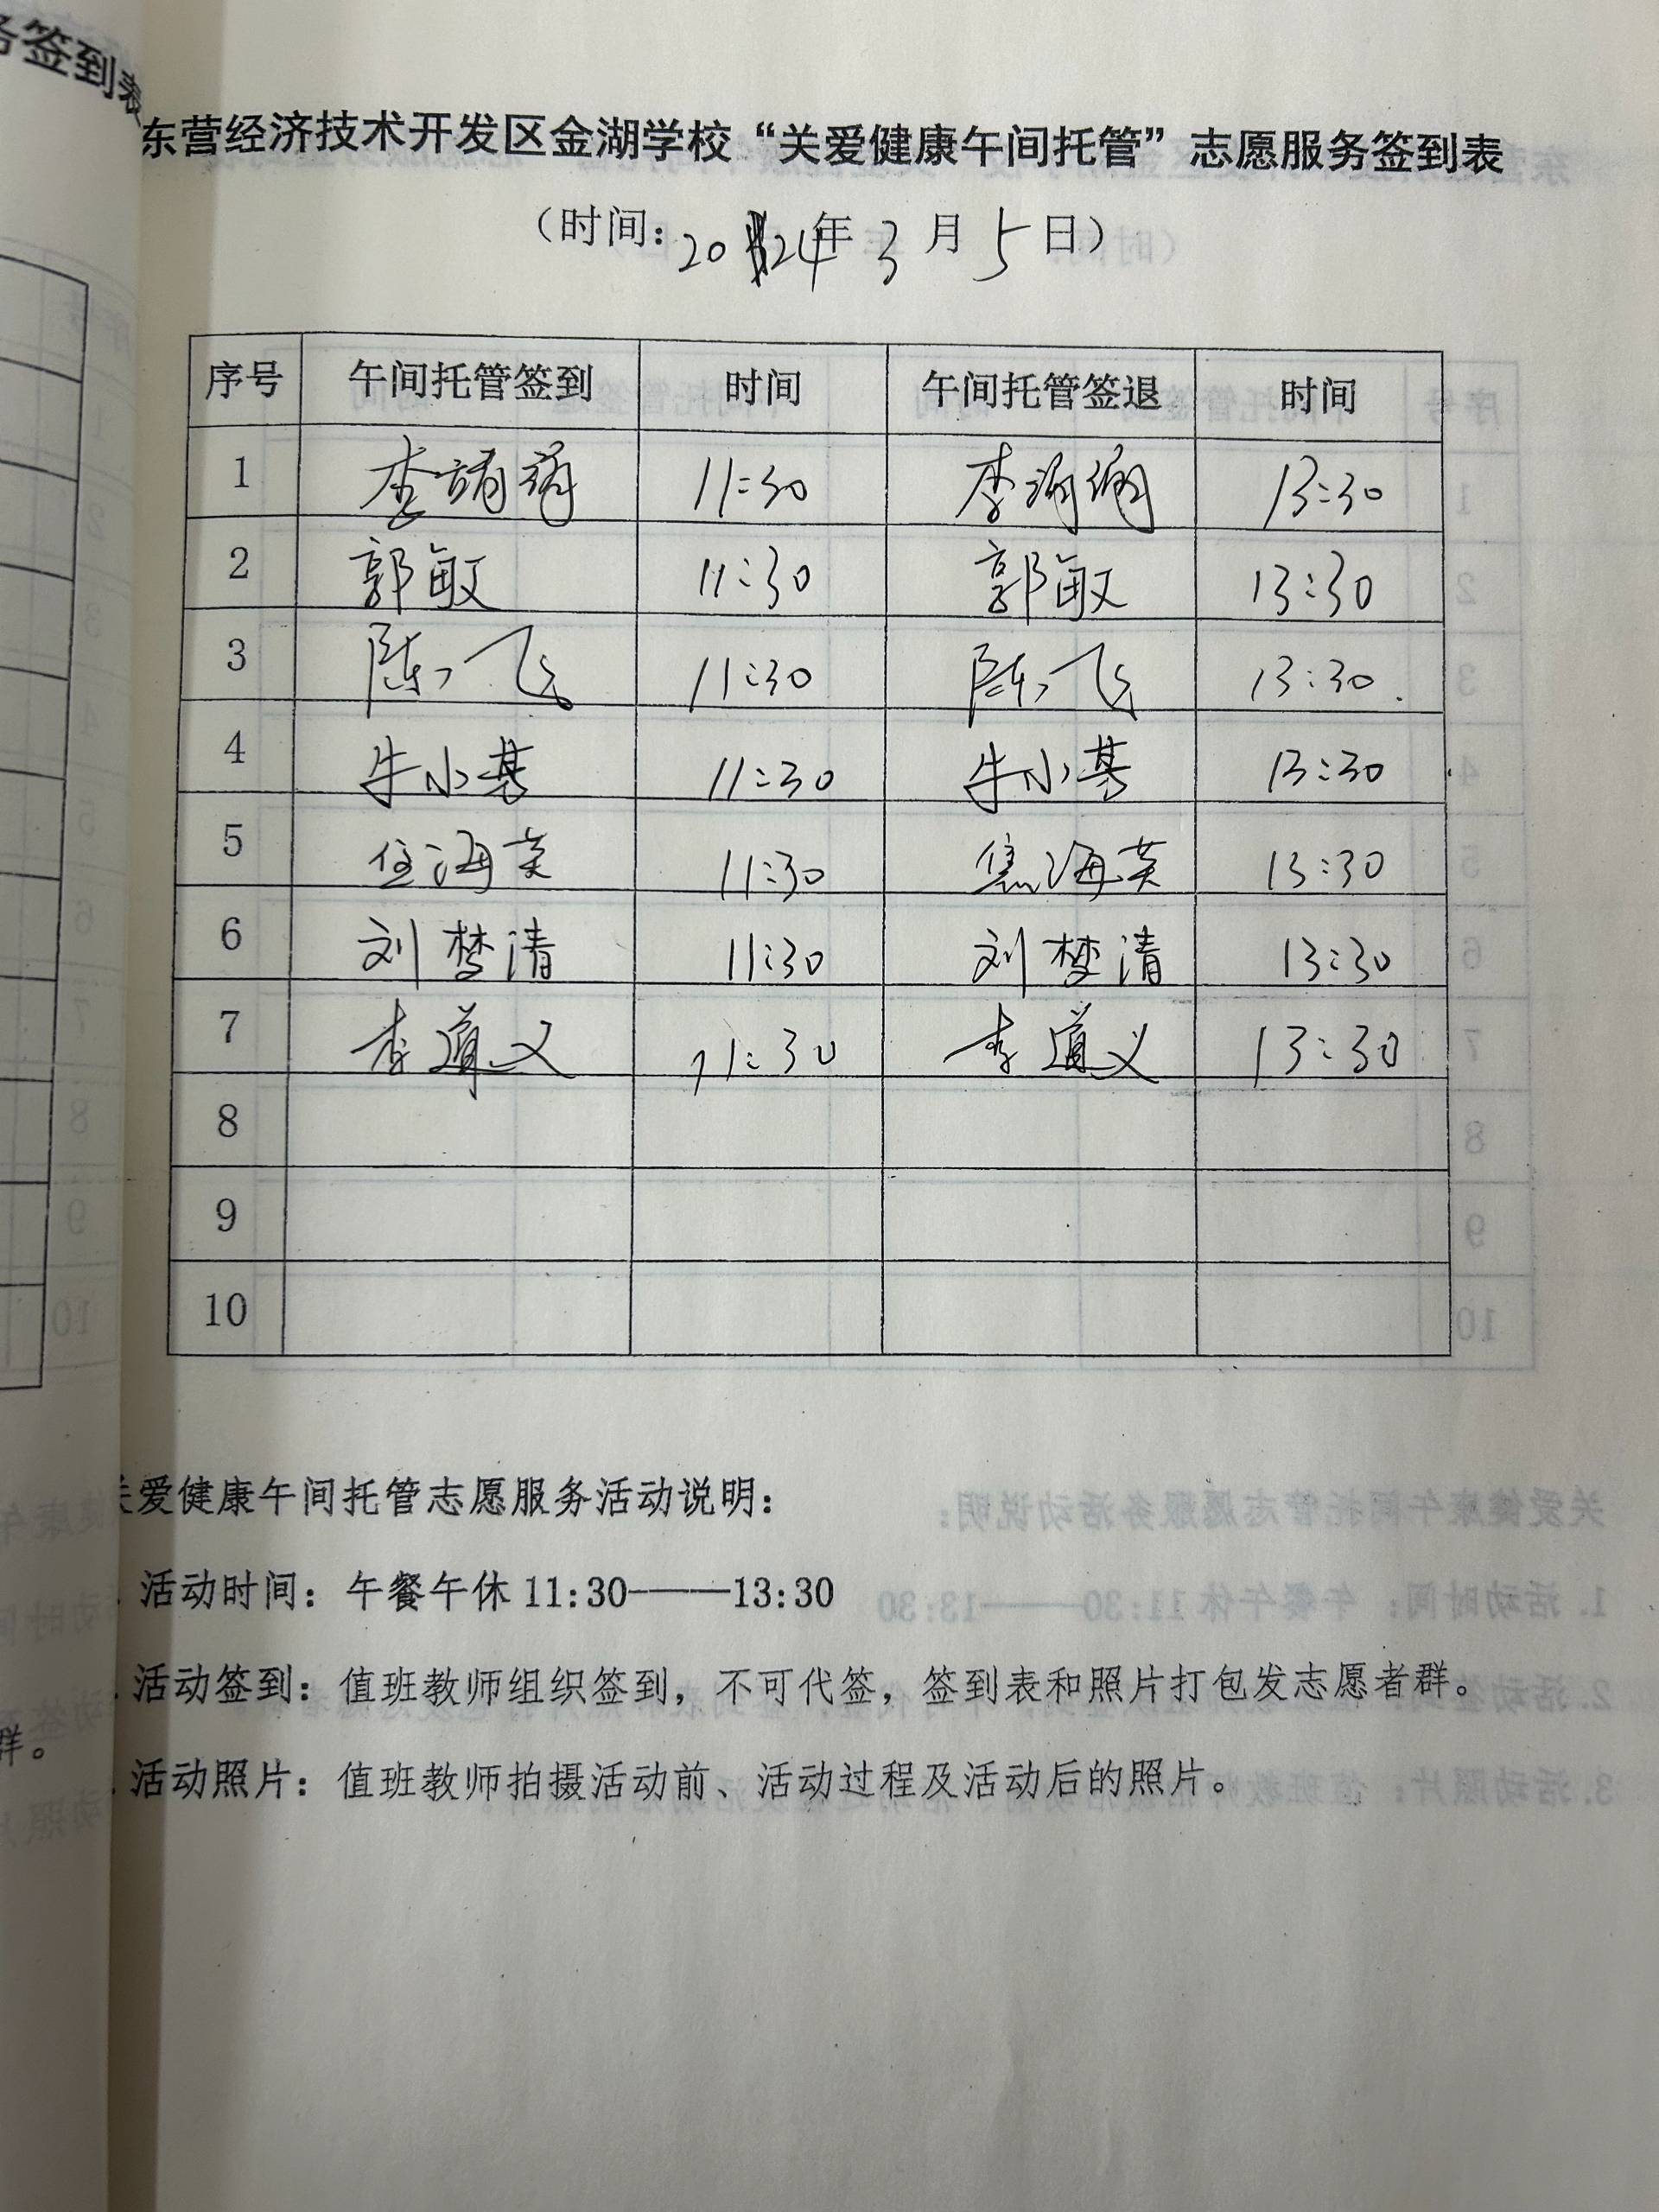 务签到表
东营经济技术开发区金湖学校“关爱健康午间托管”志愿服务签到表
（时间：2024年3月5日）
序号 午间托管签到 时间 午间托管签退 时间
1 李 11:30 李 13:30
2 郭敏 11:30 郭敏 13:30
3 陈飞 11:30 陈飞 13:30
4 牛小基 11:30 牛小基 13:30
5 海英 11:30 焦海英 13:30
6 刘梦清 11:30 刘梦清 13:30
7 李道义 11:30 李道义 13:30
8
9
10
关爱健康午间托管志愿服务活动说明：
活动时间：午餐午休 11:30———13:30
活动签到：值班教师组织签到，不可代签，签到表和照片打包发志愿者群。
群。
活动照片：值班教师拍摄活动前、活动过程及活动后的照片。